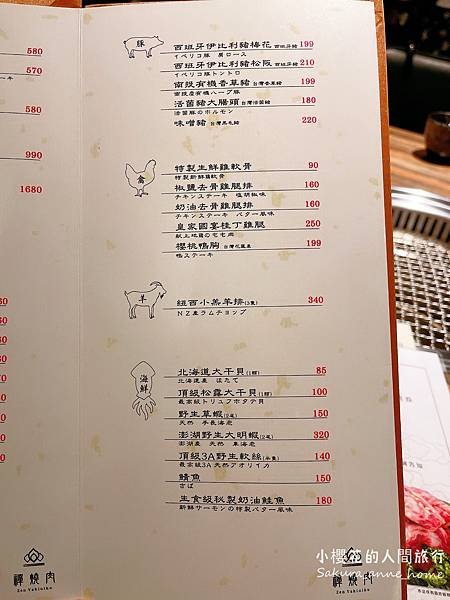 580
570
580
990
1680
豚
西班牙伊比利豬梅花 西班牙豬 199
イベリコ豚 肩ロース
西班牙伊比利豬松阪 西班牙豬 210
イベリコ豚トントロ
南投有機香草豬 台灣香草豬 199
南投産有機ハーブ豚
活菌豬大腸頭 台灣活菌豬 180
活菌豚のホルモン
味噌豬 台灣黑毛豬 220
禽
特製生鮮雞軟骨 90
特製新鮮鶏軟骨
椒鹽去骨雞腿排 160
チキンステーキ 塩胡椒味
奶油去骨雞腿排 160
チキンステーキ バター風味
皇家國宴桂丁雞腿 250
献上地鶏のもも肉
櫻桃鴨胸 台灣花蓮產 199
鴨ステーキ
羊
紐西小羔羊排(3隻) 340
NZ産ラムチョップ
海鮮
北海道大干貝(1顆) 85
北海道産 ほたて
頂級松露大干貝(1顆) 100
最高級トリュフホタテ貝
野生草蝦(2尾) 150
天然 手長海老
澎湖野生大明蝦(2尾) 320
澎湖産 天然 車海老
頂級3A野生軟絲(半隻) 140
最高級3A天然アオリイカ
鯖魚 150
さば
生食級秘製奶油鮭魚 180
新鮮サーモンの特製バター風味
60
30
30
30
70
80
50
50
禪燒肉
Zen Yakiniku
禪燒肉
Zen Yakiniku
小櫻花的人間旅行
Sakura anne home